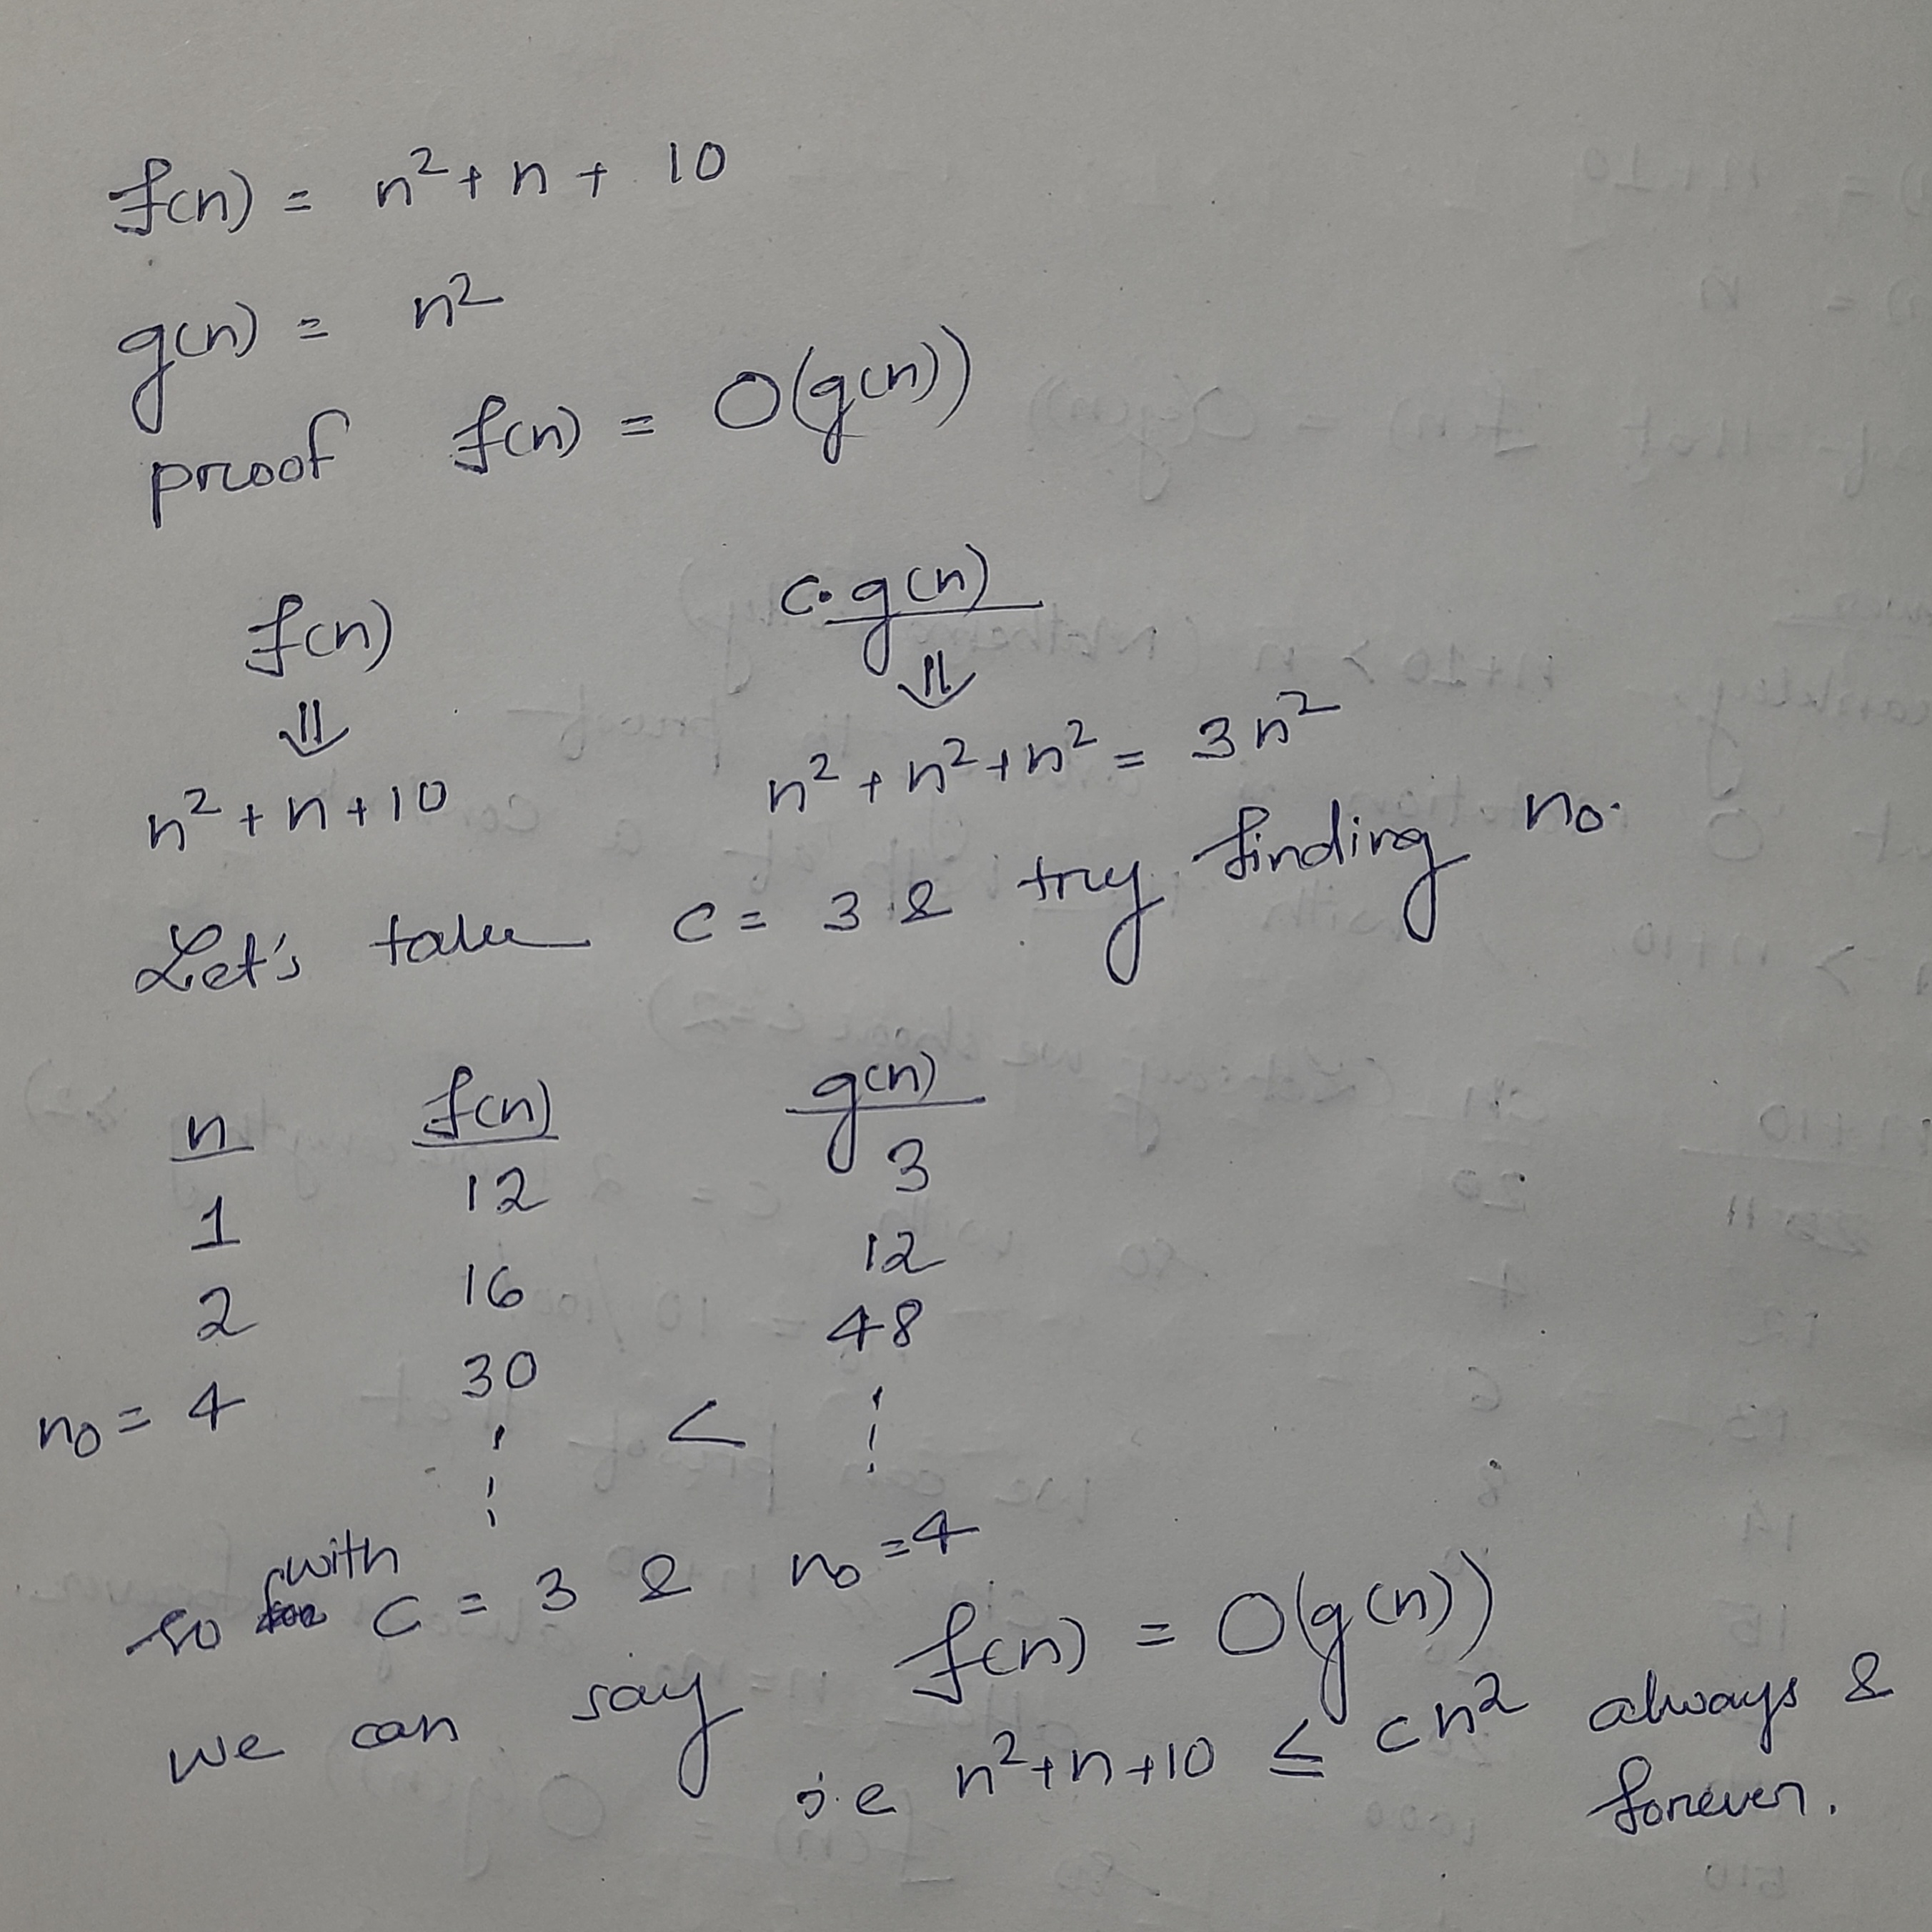 f(n) = n² + n + 10
g(n) = n²
proof f(n) = O(g(n))
f(n) c.g(n)
⇓ ⇓
n² + n + 10 n² + n² + n² = 3n²
Let's take c = 3 & try finding n₀.
n f(n) g(n)
1 12 3
2 16 12
n₀ = 4 30 < 48
so with c = 3 & n₀ = 4
we can say f(n) = O(g(n))
i.e n² + n + 10 ≤ cn² always &
forever.